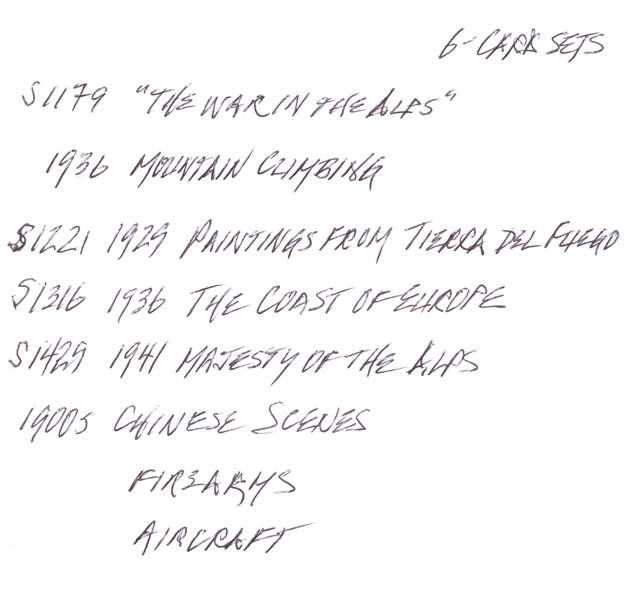 6-CARD SETS
S1179 "THE WAR IN THE ALPS"
1936 MOUNTAIN CLIMBING
S1221 1929 PAINTINGS FROM TIERRA DEL FUEGO
S1316 1936 THE COAST OF EUROPE
S1429 1941 MAJESTY OF THE ALPS
1900s CHINESE SCENES
FIREARMS
AIRCRAFT